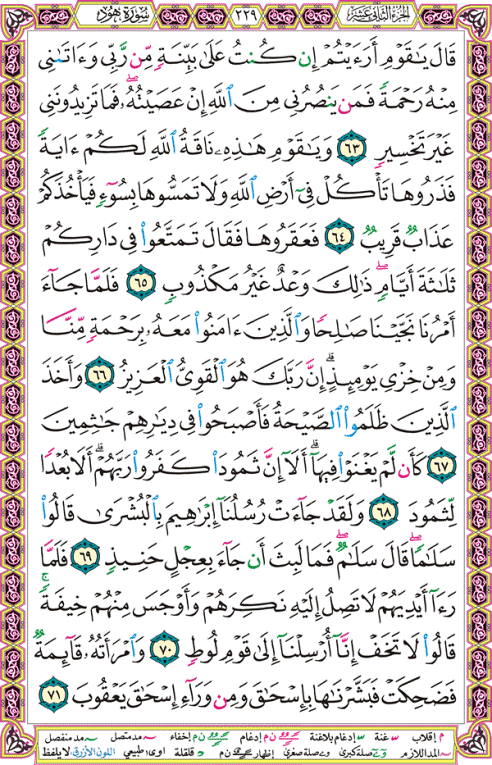 الجزء الثاني عشر ٢٢٩ سورة هود
قَالَ يَٰقَوْمِ أَرَءَيْتُمْ إِن كُنتُ عَلَىٰ بَيِّنَةٍ مِّن رَّبِّى وَءَاتَىٰنِى
مِنْهُ رَحْمَةً فَمَن يَنصُرُنِى مِنَ ٱللَّهِ إِنْ عَصَيْتُهُۥ ۖ فَمَا تَزِيدُونَنِى
غَيْرَ تَخْسِيرٍ ٦٣ وَيَٰقَوْمِ هَٰذِهِۦ نَاقَةُ ٱللَّهِ لَكُمْ ءَايَةً
فَذَرُوهَا تَأْكُلْ فِىٓ أَرْضِ ٱللَّهِ وَلَا تَمَسُّوهَا بِسُوٓءٍ فَيَأْخُذَكُمْ
عَذَابٌ قَرِيبٌ ٦٤ فَعَقَرُوهَا فَقَالَ تَمَتَّعُوا۟ فِى دَارِكُمْ
ثَلَٰثَةَ أَيَّامٍ ۖ ذَٰلِكَ وَعْدٌ غَيْرُ مَكْذُوبٍ ٦٥ فَلَمَّا جَآءَ
أَمْرُنَا نَجَّيْنَا صَٰلِحًا وَٱلَّذِينَ ءَامَنُوا۟ مَعَهُۥ بِرَحْمَةٍ مِّنَّا
وَمِنْ خِزْىِ يَوْمِئِذٍ ۗ إِنَّ رَبَّكَ هُوَ ٱلْقَوِىُّ ٱلْعَزِيزُ ٦٦ وَأَخَذَ
ٱلَّذِينَ ظَلَمُوا۟ ٱلصَّيْحَةُ فَأَصْبَحُوا۟ فِى دِيَٰرِهِمْ جَٰثِمِينَ
٦٧ كَأَن لَّمْ يَغْنَوْا۟ فِيهَآ ۗ أَلَآ إِنَّ ثَمُودَا۟ كَفَرُوا۟ رَبَّهُمْ ۗ أَلَا بُعْدًا
لِّثَمُودَ ٦٨ وَلَقَدْ جَآءَتْ رُسُلُنَآ إِبْرَٰهِيمَ بِٱلْبُشْرَىٰ قَالُوا۟
سَلَٰمًا ۖ قَالَ سَلَٰمٌ ۖ فَمَا لَبِثَ أَن جَآءَ بِعِجْلٍ حَنِيذٍ ٦٩ فَلَمَّا
رَءَآ أَيْدِيَهُمْ لَا تَصِلُ إِلَيْهِ نَكِرَهُمْ وَأَوْجَسَ مِنْهُمْ خِيفَةً ۚ
قَالُوا۟ لَا تَخَفْ إِنَّآ أُرْسِلْنَآ إِلَىٰ قَوْمِ لُوطٍ ٧٠ وَٱمْرَأَتُهُۥ قَآئِمَةٌ
فَضَحِكَتْ فَبَشَّرْنَٰهَا بِإِسْحَٰقَ وَمِن وَرَآءِ إِسْحَٰقَ يَعْقُوبَ ٧١
م إقلاب غنة إدغام بلاغنة ن م إدغام ن م إخفاء مد متصل مد منفصل
المد اللازم صلة كبرى صلة صغرى إظهار قلقلة اوى: طبيعي اللون الأزرق: لا يلفظ